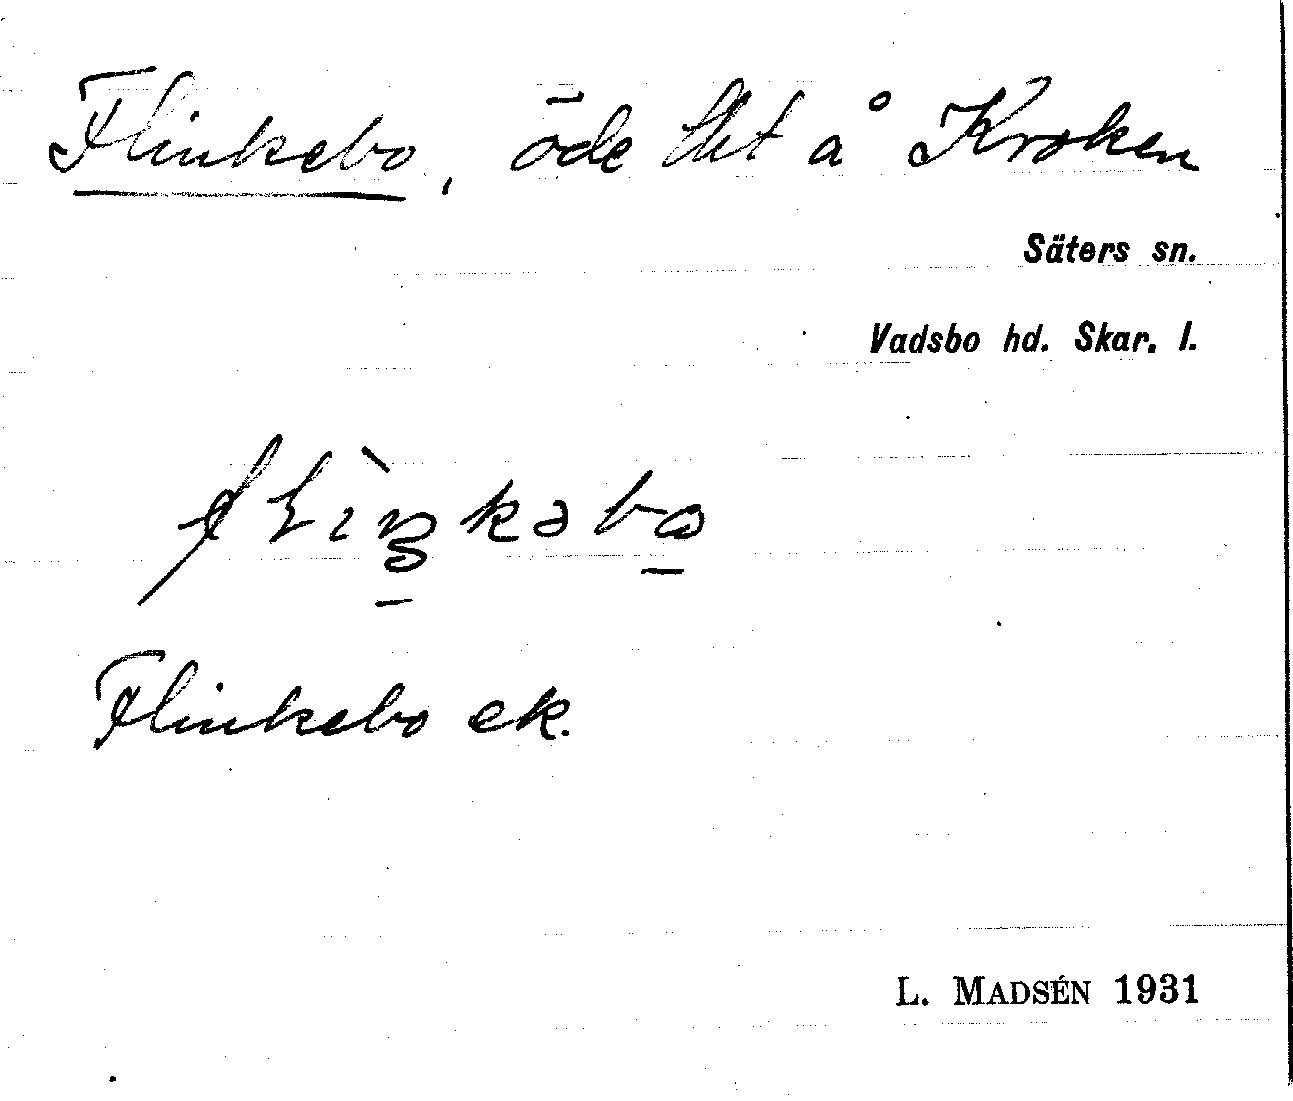 Flinkebo, öde tlt å Kroken
Säters sn.
Vadsbo hd. Skar. l.
Flinkebo ek.
L. MADSÉN 1931